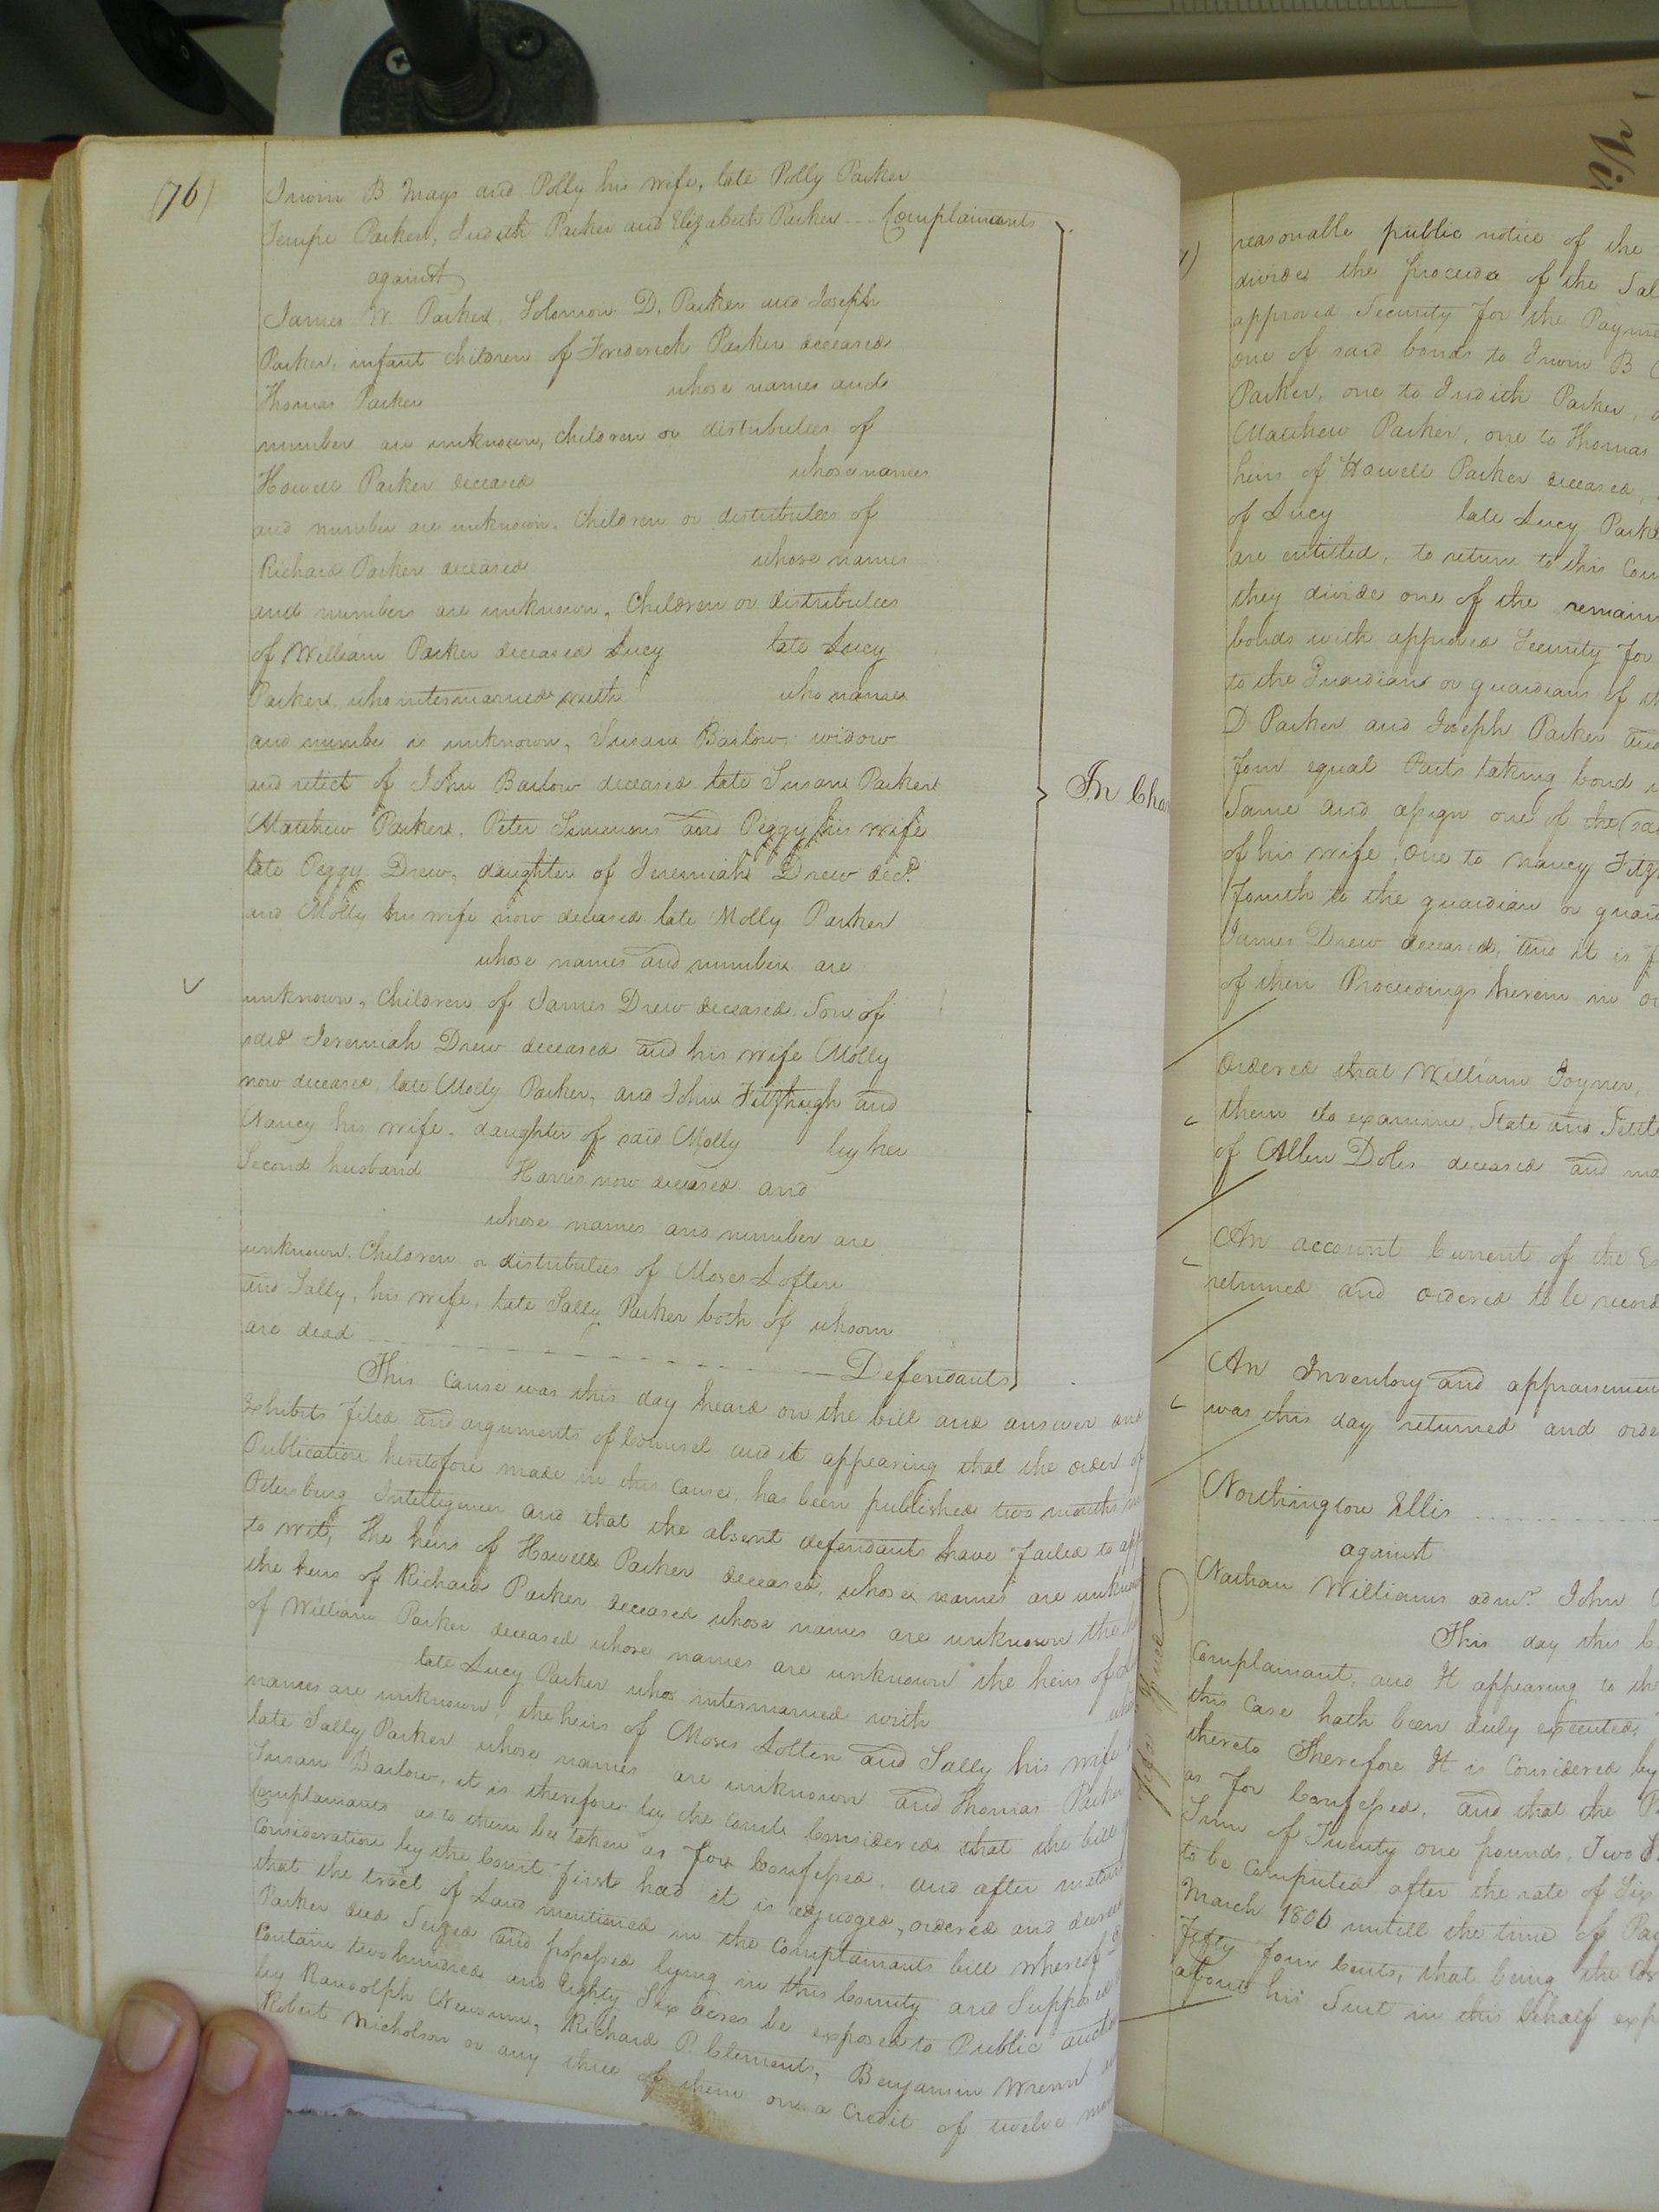 (76)
Irwin B Mays and Polly his wife, late Polly Parker
Tempe Parker, Judith Parker and Elizabeth Parker -- Complainants
against
James W. Parker, Solomon D. Parker and Joseph
Parker, infant children of Frederick Parker deceased
Thomas Parker whose names and
number are unknown, children or distributees of
Howell Parker deceased whose names
and number are unknown, Children or distributees of
Richard Parker deceased whose names
and numbers are unknown, Children or distributees
of William Parker deceased Lucy late Lucy
Parker, who intermarried with who names
and number is unknown, Susan Barlow, widow
and relict of John Barlow deceased late Susan Parker
Matthew Parker, Peter Simmons and Peggy his wife
late Peggy Drew, daughter of Jeremiah Drew decd.
and Molly his wife now deceased late Molly Parker
whose names and numbers are
unknown, Children of James Drew deceased Son of
said Jeremiah Drew deceased and his wife Molly
now deceased, late Molly Parker, and John Fitzhugh and
Nancy his wife, daughter of said Molly by her
Second husband Harris now deceased and
whose names and number are
unknown, Children or distributees of Moses Loften
and Sally, his wife, late Sally Parker both of whom
are dead -- Defendants
In Cha
This cause was this day heard on the bill and answer and
exhibits filed and arguments of Counsel and it appearing that the order of
Publication heretofore made in this Cause, has been published two months in
Petersburg Intelligencer and that the absent defendants have failed to app
to wit, the heirs of Howell Parker deceased, whose names are unknown
the heirs of Richard Parker deceased whose names are unknown the
of William Parker deceased whose names are unknown the heirs of
late Lucy Parker who intermarried with
names are unknown, the heirs of Moses Lolten and Sally his wife
late Sally Parker whose names are unknown and Thomas Parker
Susan Barlow, it is therefore by the Court Considered that the bill
Complainants as to them be taken as for Confessed. and after mature
Consideration by the Court first had it is adjudged, ordered and decreed
that the tract of Land mentioned in the Complainants bill whereof
Parker died Seized and possessed lying in this County and Supposed
Contain two hundred and Eighty Six acres be exposed to Public auction
by Randolph Newsum, Richard P. Clements, Benjamin Wrenn
Robert Nicholson or any three of them on a Credit of twelve
reasonable public notice of the
divided the proceeds of the Sal
approved Security for the Payme
one of said bonds to Irwin B
Parker, one to Judith Parker,
Matthew Parker, one to Thomas
heirs of Howell Parker deceased,
of Lucy late Lucy Park
are entitled, to return to this Cou
they divide one of the remain
bonds with approved Security for
to the Guardian or guardians of th
D Parker and Joseph Parker and
four equal Parts taking bond
Same and assign one of the
of his wife, One to Nancy Fitz
fourth to the guardian or guar
James Drew deceased, and it is
of their Proceedings herein in
Ordered that William Joyner,
them do examine, State and Settle
of Allen Doles deceased and
An account Current of the Es
returned and ordered to be record
An Inventory and appraisemen
was this day returned and orde
Northington Ellis
against
Nathan Williams admr. John
This day this
Complainant, and It appearing to the
this case hath been duly executed,
thereto Therefore It is Considered by
as for Confessed, and that the
Sum of Twenty one pounds, Two
to be Computed after the rate of Six
March 1806 untill the time of Pay
fifty four Cents, that being the
about his Suit in this behalf exp